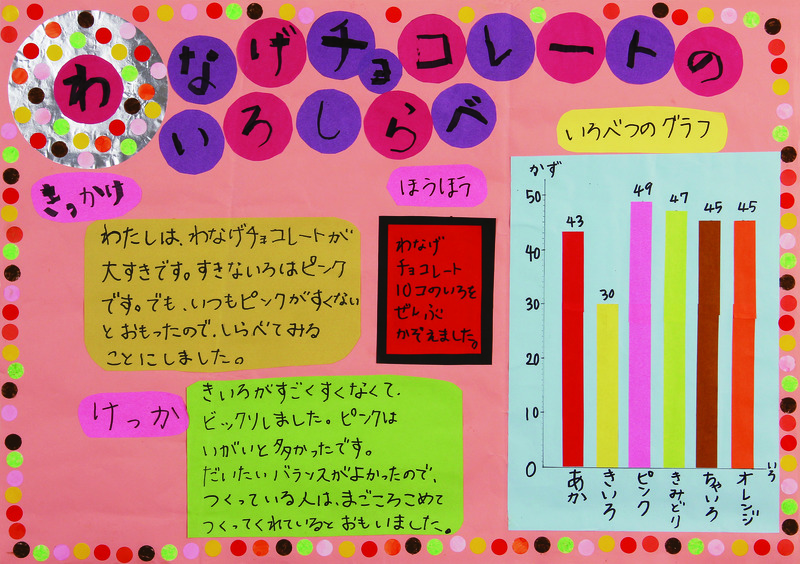 わなげチョコレートの
いろしらべ
きっかけ
わたしは、わなげチョコレートが
大すきです。すきないろはピンク
です。でも、いつもピンクがすくない
とおもったので、しらべてみる
ことにしました。
ほうほう
わなげ
チョコレート
10コのいろを
ぜんぶ
かぞえました。
けっか
きいろがすごくすくなくて、
ビックリしました。ピンクは
いがいと多かったです。
だいたいバランスがよかったので、
つくっている人は、まごころこめて
つくってくれているとおもいました。
いろべつのグラフ
かず
50
40
30
20
10
0
43
30
49
47
45
45
あか
きいろ
ピンク
きみどり
ちゃいろ
オレンジ
いろ